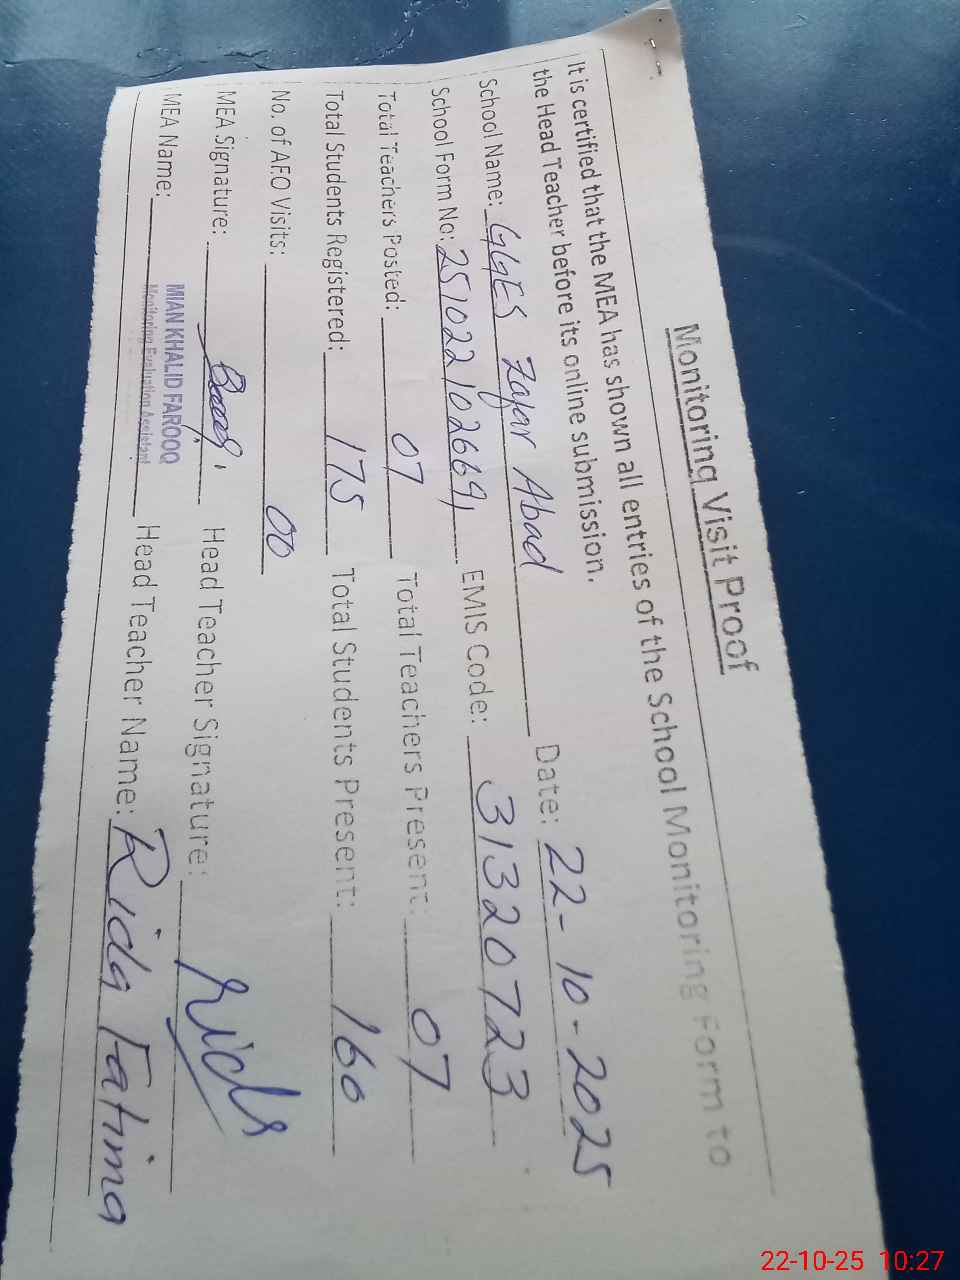 Monitoring Visit Proof
It is certified that the MEA has shown all entries of the School Monitoring Form to
the Head Teacher before its online submission.
School Name: GGES Zafar Abad Date: 22-10-2025
School Form No: 251022102669 EMIS Code: 31320723
Total Teachers Posted: 07 Total Teachers Present: 07
Total Students Registered: 175 Total Students Present: 160
No. of AEO Visits: 00
MEA Signature: Head Teacher Signature: Rida
MEA Name: MIAN KHALID FAROOQ Head Teacher Name: Rida Fatima
Monitoring Evaluation Assistant
22-10-25 10:27